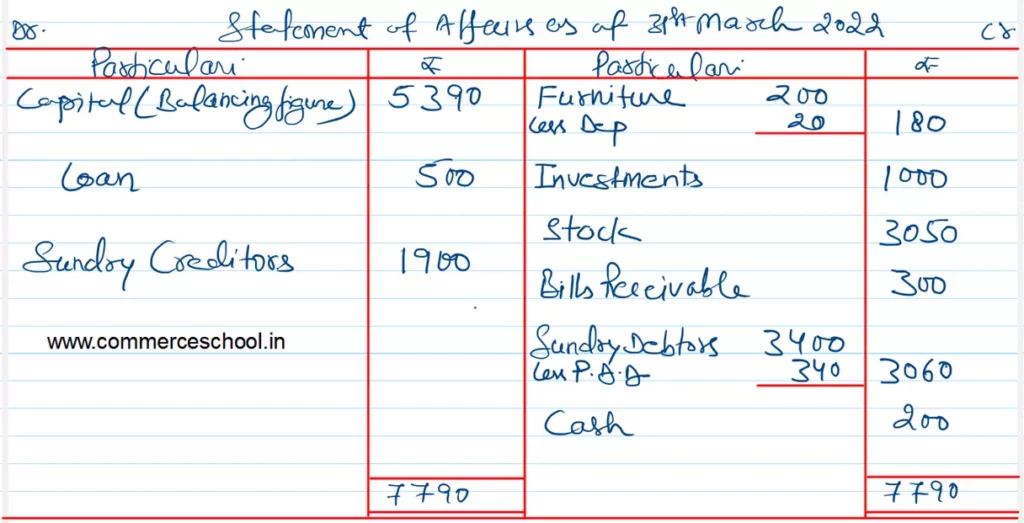 Dr. Statement of Affairs as of 31st March 2022 Cr
Particulars ₹ Particulars ₹
Capital (Balancing figure) 5390 Furniture 200
Less Dep 20 180
Loan 500 Investments 1000
Stock 3050
Sundry Creditors 1900
Bills Receivable 300
www.commerceschool.in Sundry Debtors 3400
Less P.D.D 340 3060
Cash 200
7790 7790